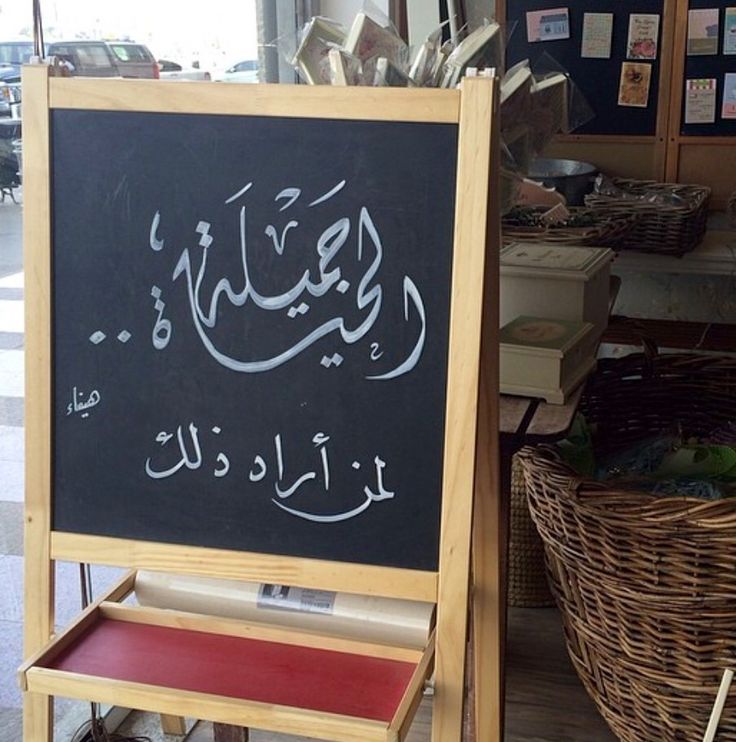 الحياة جميلة ..
لمن أراد ذلك
هيفاء